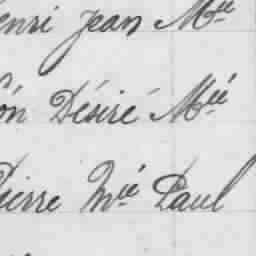 enri Jean Mie
on Désiré Mié
Pierre Mié Paul